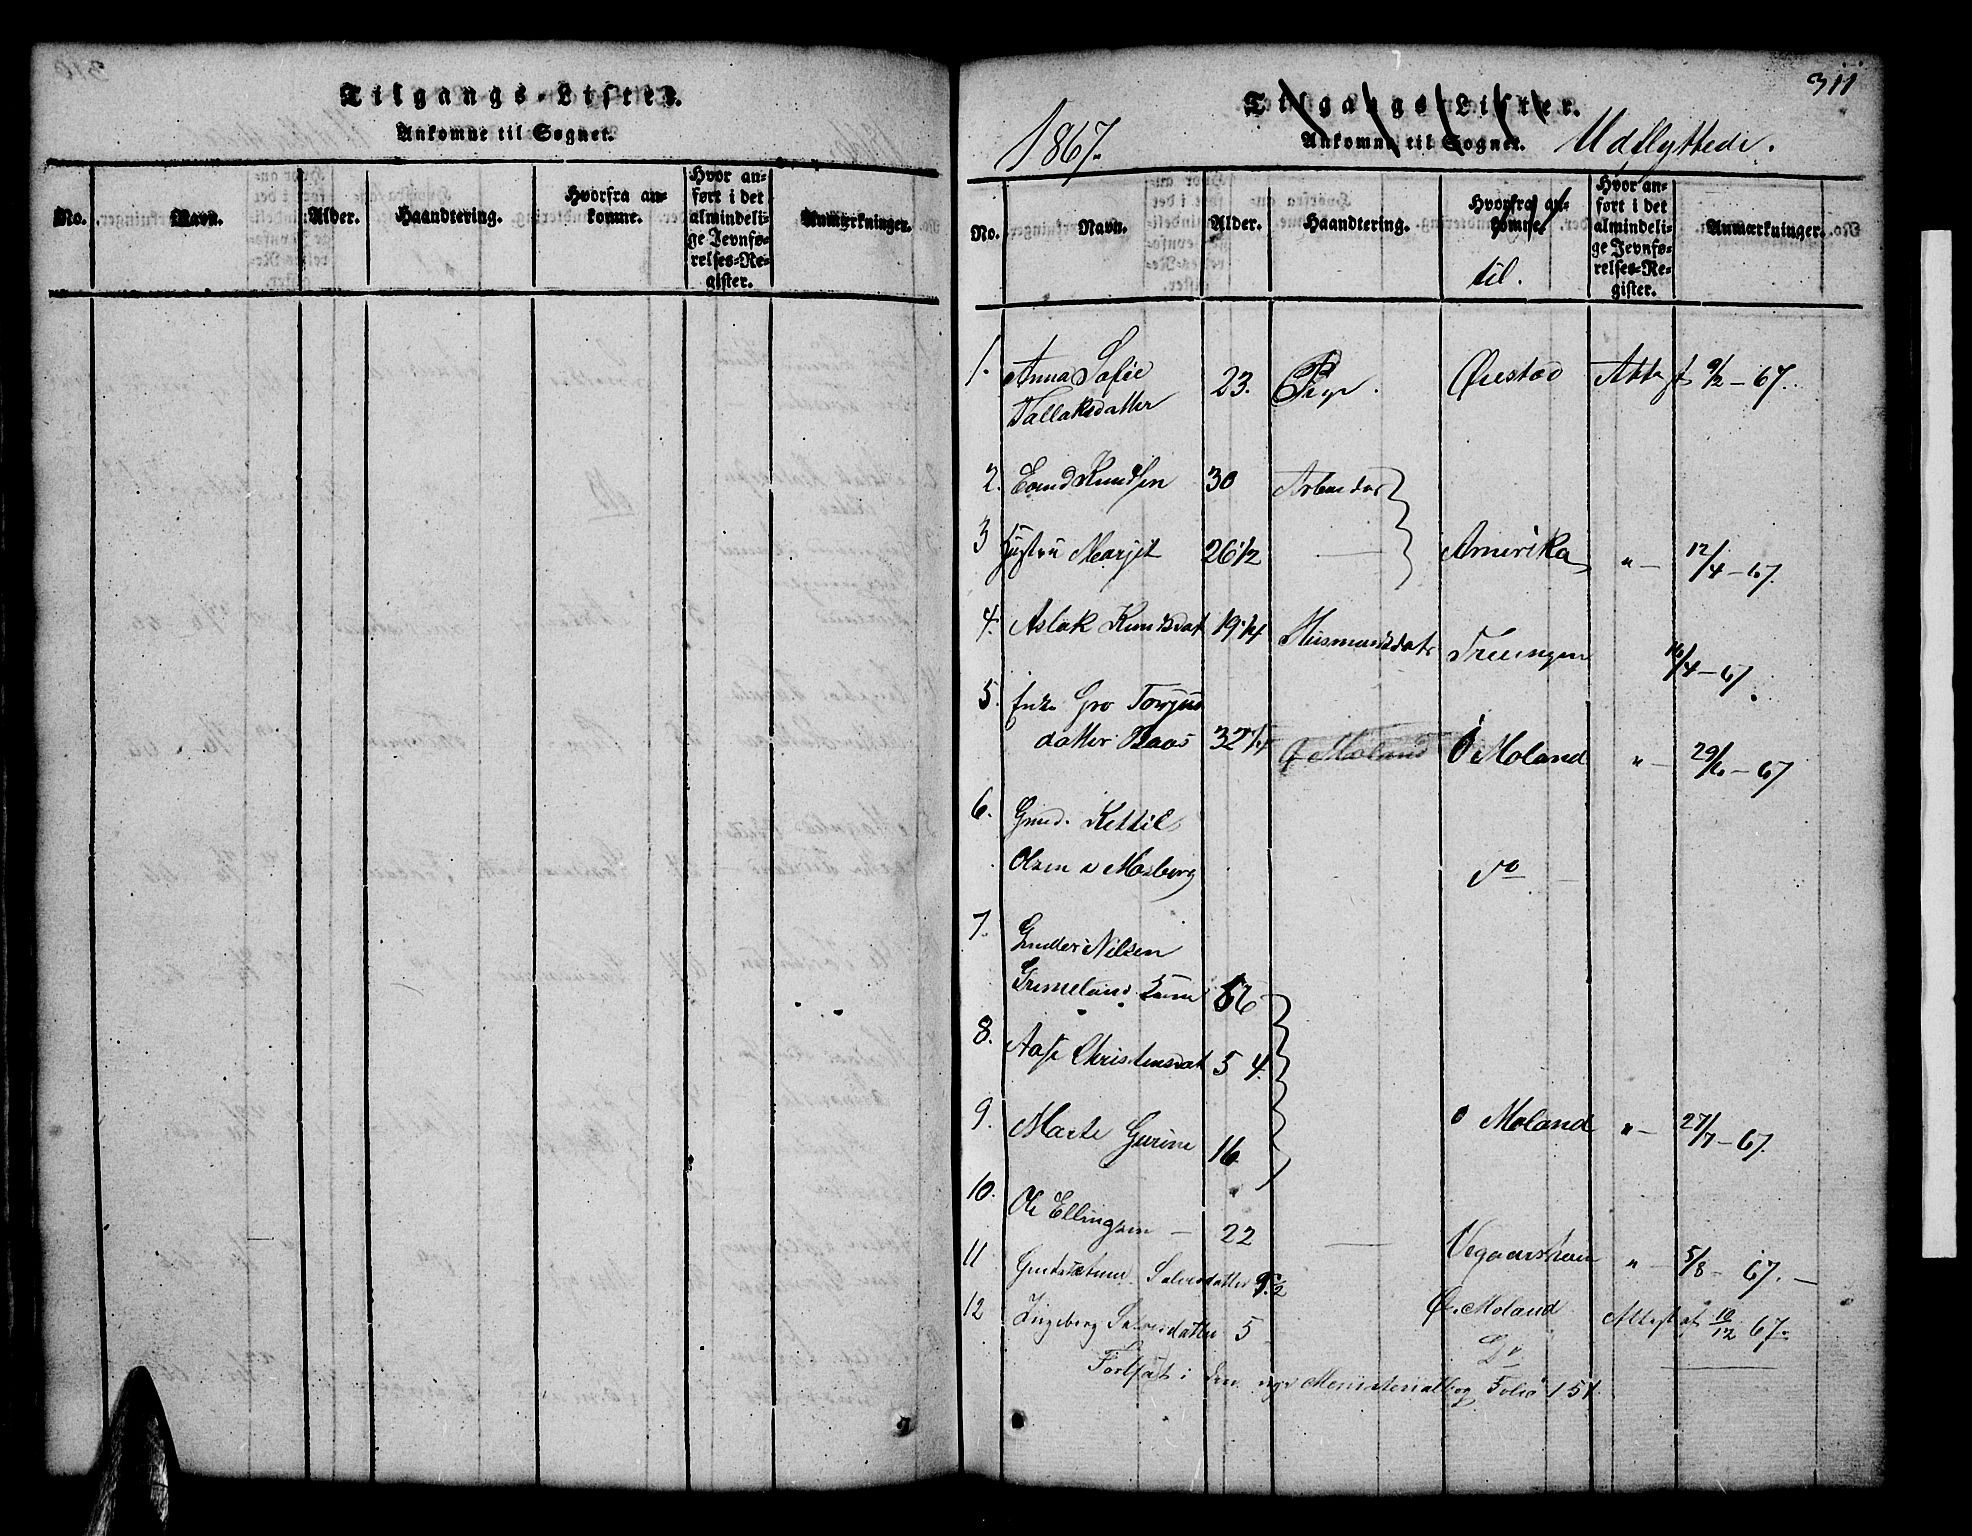 Tilgangs-Lister.
Ankomne til Sognet.
No. Navn. Alder. Haandtering. Hvorfra ankomne. Hvor anført i det almindelige Jevnførelses-Register. Anmærkninger.
311
Tilgangs-Lister.
1867. Ankomne til Sognet. Udflyttede.
No. Navn. Alder. Haandtering. Hvorfra ankomne til. Hvor anført i det almindelige Jevnførelses-Register. Anmærkninger.
1. Anna Sofie
Tallaksdatter 23. Pige. Øiestad Attest 9/2 – 67.
2. Eivind Knudsen 30 Arbeider
3 Hustru Marjet 26 1/2 — Amerika " – 12/4 – 67.
4. Aslak Knudsdat 19 1/4 Husmandsdatr Treungen 16/4 – 67.
5. Enke Gro Torjus
datter Baas 32 1/4 Ø Moland Ø Moland " – 29/6 – 67
6. Gmd. Kettil
Olsen Mosberg do
7. Gunder Nilsen
Grimeland 56
8. Aase Christensdat 54
9. Marte Gurine 16 Ø Moland " – 27/7 – 67.
10. Ole Ellingsen – 22 — Vegaarsheien " – 5/8 – 67. –
11 Salvesdatter 9 1/2 Ø. Moland Attest af 10/12 67.
12 Ingeborg Salvesdatter 5 Do
Fortsat i den nye Ministerialbog Folio 151.